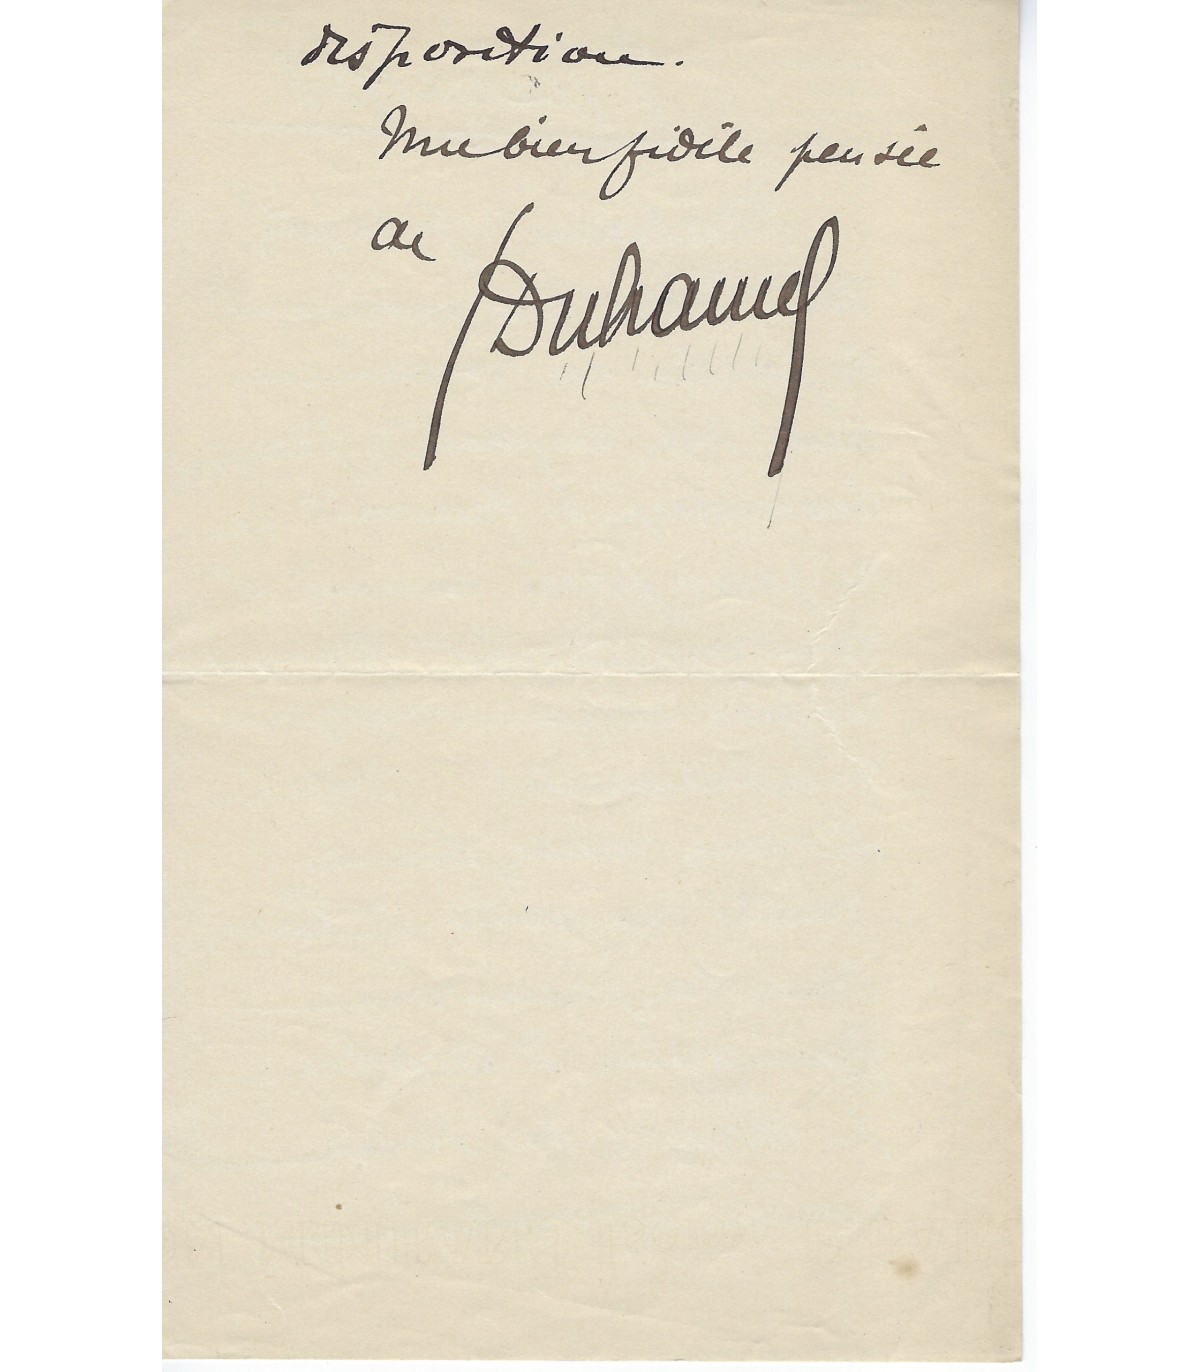 disposition.
Une bien fidèle pensée
de
Duhamel